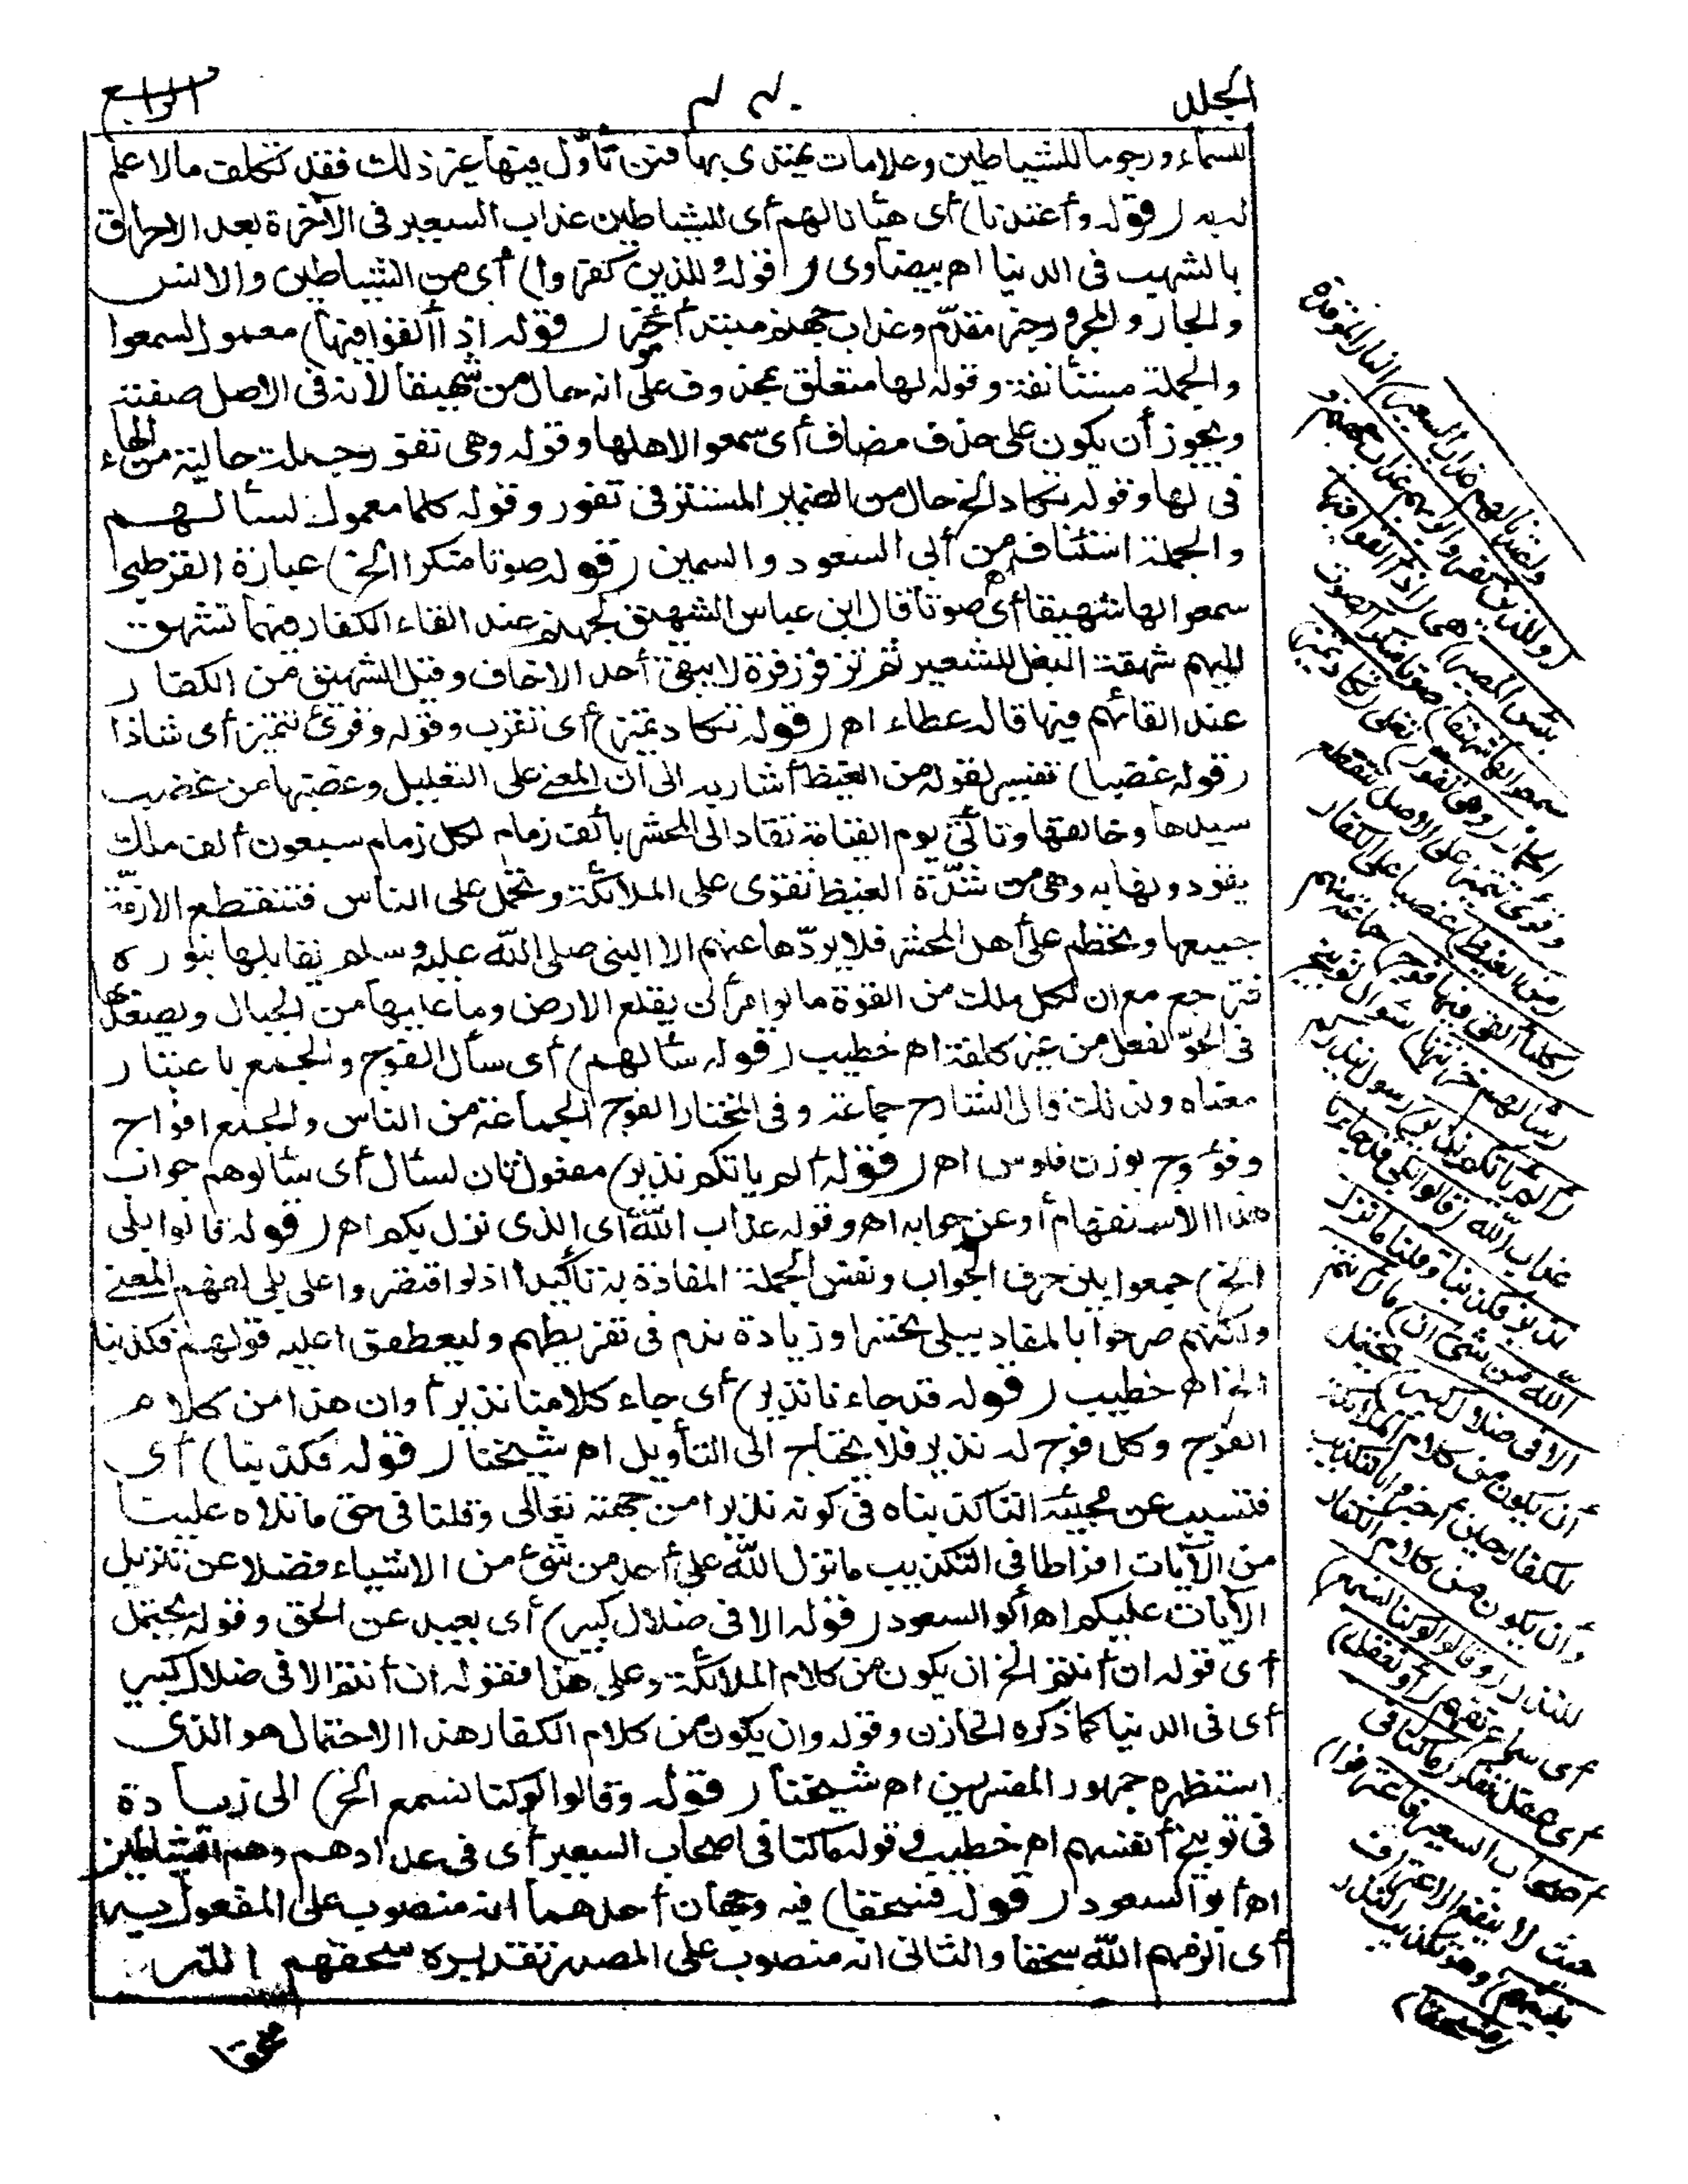 المجلد
الرابع
للسماء ورجوما للشياطين وعلامات يهتدى بها فمن تأول فيها غير ذلك فقد تكلف مالا علم
له به (قوله وأعتدنا) أى هيأنا لهم أى للشياطين عذاب السعير فى الآخرة بعد الاحراق
بالشهب فى الدنيا اه بيضاوى (قوله وللذين كفروا) أى من الشياطين والانس
والجار والمجرور خبر مقدّم وعذاب جهنم مبتدأ مؤخر (قوله اذا ألقوا فيها) معمول لسمعوا
والجملة مستأنفة وقوله لها متعلق بمحذوف على انه حال من شهيقا لأنه فى الاصل صفته
ويجوز أن يكون على حذف مضاف أى سمعوا لاهلها وقوله وهى تفور جملة حالية من الهاء
فى لها وقوله تكاد الخ حال من الضمير المستتر فى تفور وقوله كلما معمول لسألهم
والجملة استئناف اه من أبى السعود والسمين (قوله صوتا منكرا الخ) عبارة القرطبى
سمعوا لها شهيقا أى صوتا قال ابن عباس الشهيق لجهنم عند القاء الكفار فيها تشهق
اليهم شهقة البغل للشعير ثم تزفر زفرة لا يبقى أحد الا خاف وقيل الشهيق من الكفار
عند القائهم فيها قاله عطاء اه (قوله تكاد تميز) أى تقرب وقوله وقرئ تتميز أى شاذا
(قوله غضبا) تفسير لقوله من الغيظ أشار به الى أن المعنى على التعليل وغضبها عن غضب
سيدها وخالقها وتأتى يوم القيامة تقاد الى المحشر بألف زمام لكل زمام سبعون ألف ملك
يقودونها به وهى من شدّة الغيظ تقوى على الملائكة وتحمل على الناس فتتقطع الازمّة
جميعها وتحطم على أهل المحشر فلا يردّها عنهم الا النبى صلى الله عليه وسلم يقابلها بنوره
فترجع مع ان لكل ملك من القوة ما لو أمر أن يقلع الارض وما عليها من الجبال ويصعد بها
فى الجوّ لفعل من غير كلفة اه خطيب (قوله سألهم) أى سأل الفوج والجمع باعتبار
معناه ولذلك قال الشارح جماعة وفى المختار الفوج الجماعة من الناس والجمع افواج
وفؤوج بوزن فلوس اه (قوله ألم يأتكم نذير) مفعول ثان لسأل أى سألوهم جواب
هذا الاستفهام أو عن جوابه اه وقوله عذاب الله أى الذى نزل بكم اه (قوله قالوا بلى
الخ) جمعوا بين حرف الجواب ونفس الجملة المفادة به تأكيدا اذ لو اقتصروا على بلى لفهم المعنى
ولكنهم صرحوا بالمفاد ببلى تحسرا وزيادة ندم فى تفريطهم وليعطفوا عليه قولهم فكذبنا
الخ اه خطيب (قوله قد جاءنا نذير) أى جاء كلا منا نذير أو ان هذا من كلام
الفوج وكل فوج له نذير فلا يحتاج الى التأويل اه شيخنا (قوله فكذبنا) أى
فتسبب عن مجيئه اننا كذبناه فى كونه نذيرا من جهته تعالى وقلنا فى حق ما تلاه علينا
من الآيات افراطا فى التكذيب ما نزل الله على أحد من شئ من الاشياء فضلا عن تنزيل
الآيات عليكم اه أبو السعود (قوله الا فى ضلال كبير) أى بعيد عن الحق وقوله يحتمل
أى قوله ان أنتم الخ ان يكون من كلام الملائكة وعلى هذا فقوله ان أنتم الا فى ضلال كبير
أى فى الدنيا كما ذكره الخازن وقوله وان يكون من كلام الكفار هذا الاحتمال هو الذى
استظهره جمهور المفسرين اه شيخنا (قوله وقالوا لو كنا نسمع الخ) الى زيادة
فى توبيخ أنفسهم اه خطيب وقوله ما كنا فى اصحاب السعير أى فى عدادهم وهم الشياطين
اه أبو السعود (قوله فسحقا) فيه وجهان أحدهما انه منصوب على المفعول به
أى الزمهم الله سحقا والثانى انه منصوب على المصدر تقديره سحقهم الله
سحقا
(وأعتدنا لهم عذاب السعير) النار الموقدة
(وللذين كفروا بربهم عذاب جهنم و
بئس المصير) هى (اذا ألقوا فيها
سمعوا لها شهيقا) صوتا منكرا كصوت
الحمار (وهى تفور) تغلى (تكاد تميز)
وقرئ تتميز على الاصل تتقطع
(من الغيظ) غضبا على الكفار
(كلما ألقى فيها فوج) جماعة منهم
(سألهم خزنتها) سؤال توبيخ
(ألم يأتكم نذير) رسول ينذركم
عذاب الله (قالوا بلى قد جاءنا
نذير فكذبنا وقلنا ما نزل
الله من شئ ان) ما (أنتم
الا فى ضلال كبير) يحتمل
أن يكون من كلام الملائكة
للكفار حين أخبروا بالتكذيب
وأن يكون من كلام الكفار
للنذر (وقالوا لو كنا نسمع)
أى سماع تفهم (أو نعقل)
أى عقل تفكر (ما كنا فى
أصحاب السعير فاعترفوا)
حيث لا ينفع الاعتراف
بذنبهم) وهو تكذيب النذر
(فسحقا)